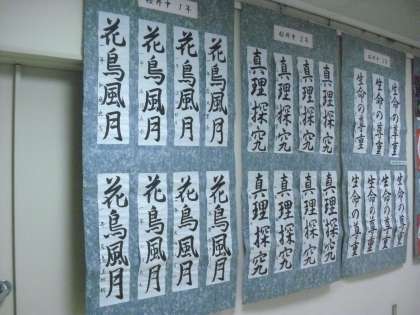 中 1年
花鳥風月
花鳥風月
花鳥風月
花鳥風月
花鳥風月
花鳥風月
花鳥風月
花鳥風月
中 2年
真理探究
真理探究
真理探究
真理探究
真理探究
真理探究
真理探究
真理探究
生命の尊重
生命の尊重
生命の尊重
生命の尊重
生命の尊重
生命の尊重
生命の尊重